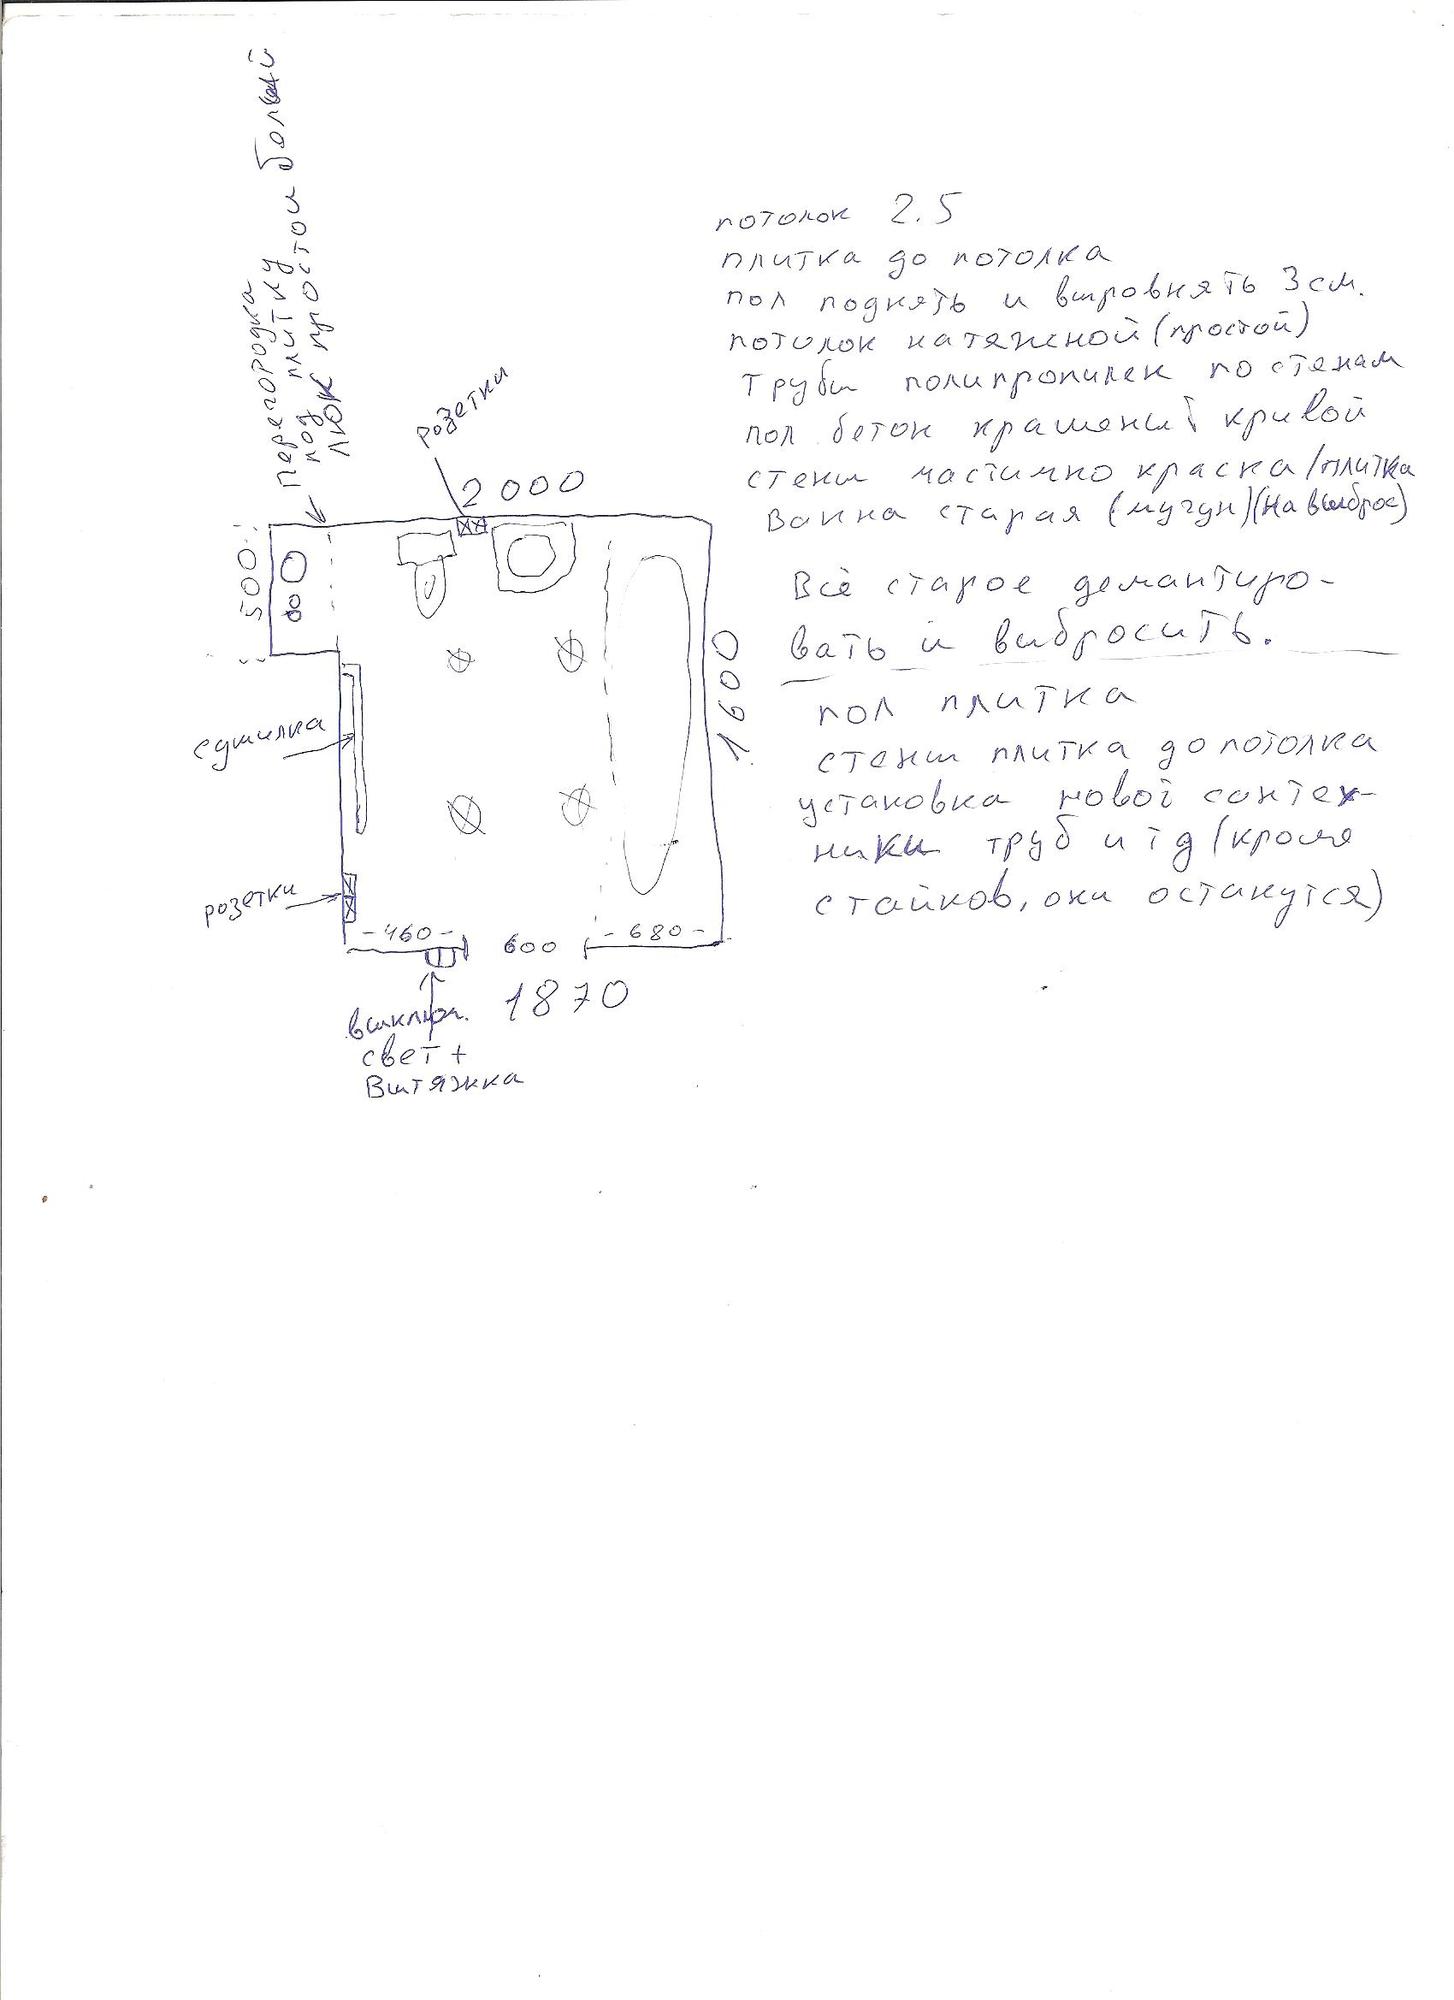 Перегородка
под плитку
люк простой белый
розетки
2 000
500
1600
сушилка
розетки
-460-
600
-680-
1870
выключ.
свет +
Вытяжка
потолок 2.5
плитка до потолка
пол поднять и выровнять 3 см.
потолок натяжной (простой)
трубы полипропилен по стенам
пол бетон крашеный кривой
стены частично краска/плитка
Ванна старая (чугун) (на выброс)
Всё старое демантиро-
вать и выбросить.
пол плитка
стены плитка до потолка
установка новой сантех-
ники труб и т д (кроме
стайков, они останутся)